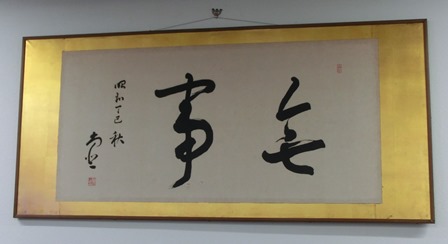 無事
昭和丁巳 秋